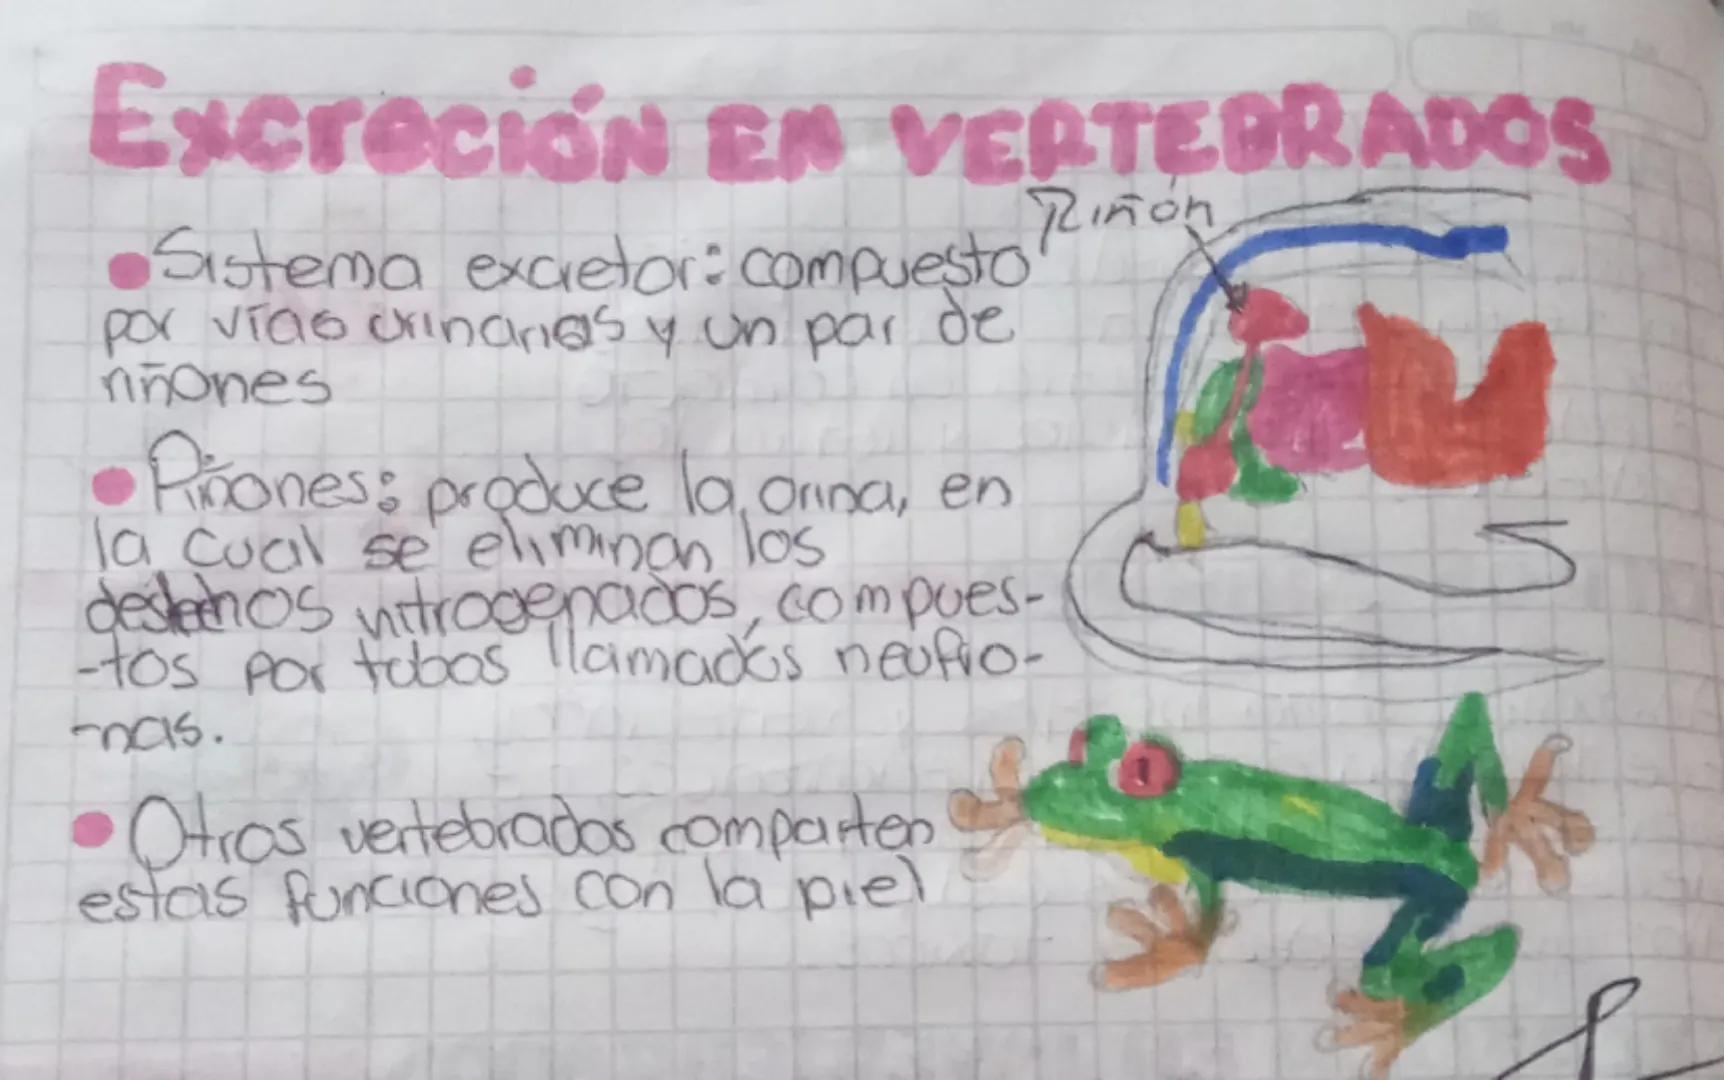 EXCreCIÓN EN VERTEBRADOS
Riñón
• Sistema excretor: compuesto
por vías urinarias y un par de
riñones
• Riñones: produce la orina, en
la cual se eliminan los
desechos nitrogenados, compues-
-tos por tubos llamados neufro-
-nas.
• Otros vertebrados comparten
estas funciones con la piel